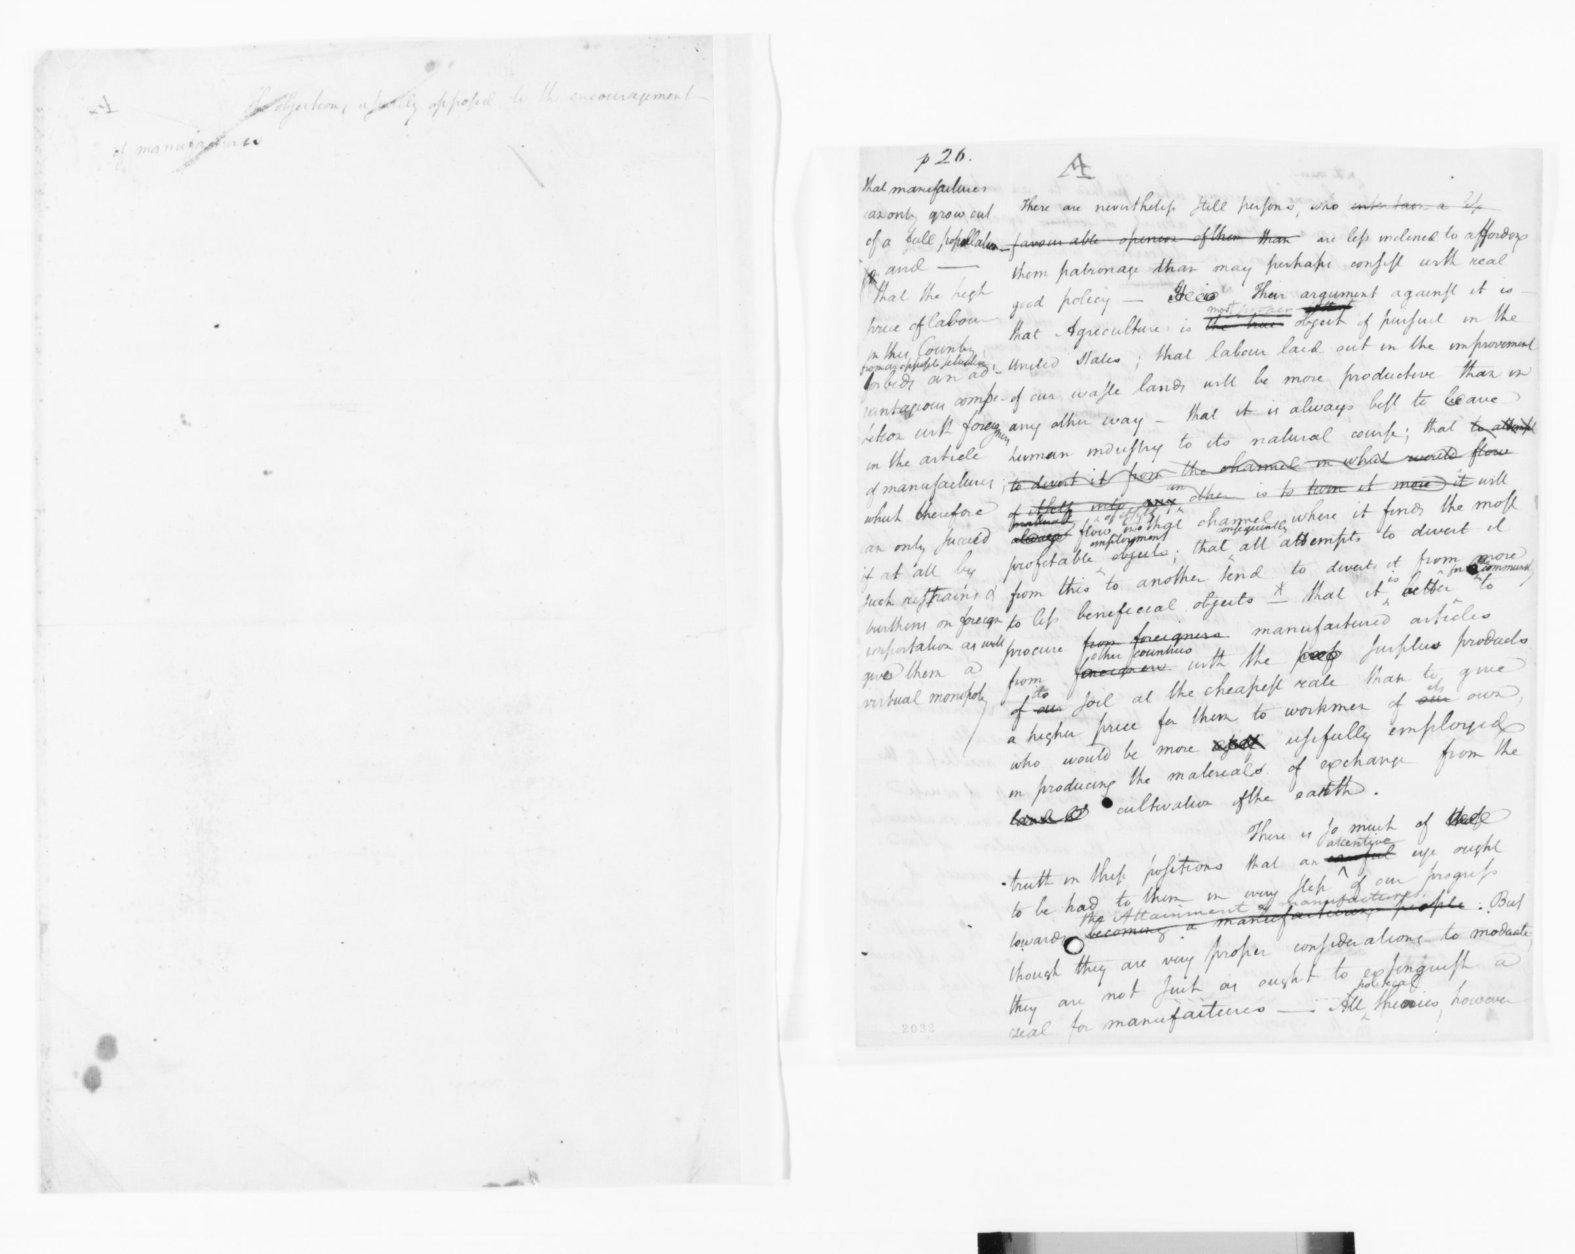 The objections usually opposed to the encouragement
of manufactures
p 26.
A
that manufactures
can only grow out
of a full population
and —
that the high
price of labour
in this Country
from an opposite situation
forbids an ad-
vantageous compe-
tition with foreigners
in the article
of manufactures;
which therefore
can only succeed
if at all by
such restraints &
burthens on foreign
importation as will
give them a
virtual monopoly
There are nevertheless still persons, who entertain a less
favourable opinion of them than are less inclined to afford
them patronage than may perhaps consist with real
good policy — It is Their argument against it is —
most
that Agriculture is the true object of pursuit in the
United States; that labour laid out in the improvement
of our waste lands will be more productive than in
any other way — that it is always best to leave
human industry to its natural course; that to attempt
to divert it from the channel in what would flow
of itself into an other is to turn it more it will
naturally of itself
always flow into that channel where it finds the most
employment consequently
profitable objects; that all attempts to divert it
from this to another tend to divert it from more
to less beneficial objects — that it is better for the community to
procure from foreigners manufactured articles
other countries
from foreigners with the surplus products
its
of our soil at the cheapest rate than to give
its
a higher price for them to workmen of our own,
who would be more usefully employed
in producing the materials of exchange from the
cultivation of the earth.
There is so much of
attentive
truth in these positions that an careful eye ought
to be had to them in every step of our progress
the Attainment of manufactures
towards becoming a manufacturing people. But
though they are very proper considerations to moderate,
they are not such as ought to extinguish a
political
zeal for manufactures — All theories, however
2032